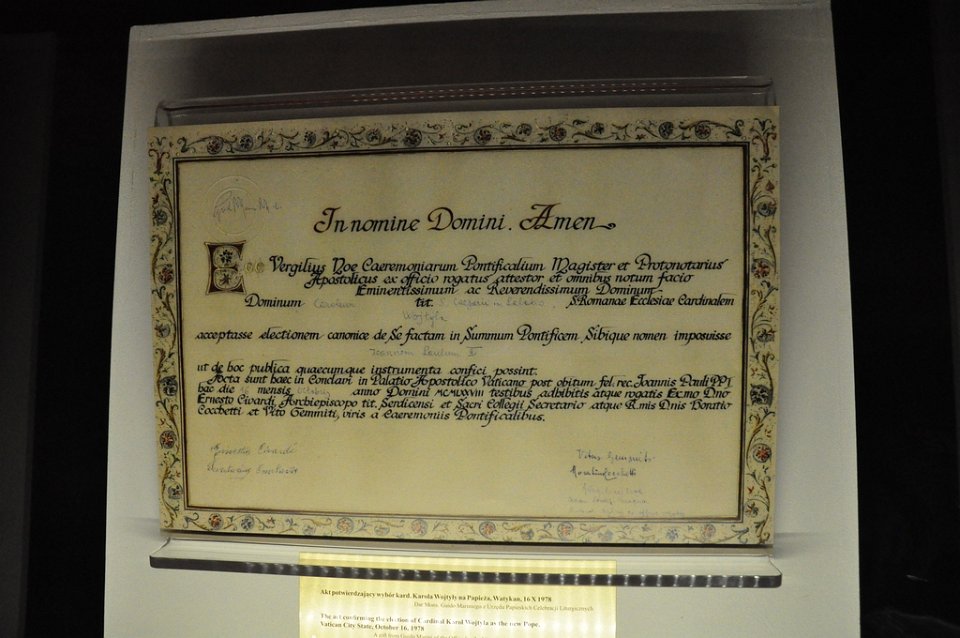 In nomine Domini. Amen
Ego Vergilius Noe Caeremoniarum Pontificalium Magister et Protonotarius
Apostolicus ex officio rogatus attestor et omnibus notum facio
Eminentissimum ac Reverendissimum Dominum
Dominum Carolum tit. S. Caesarii in Palatio S. Romanae Ecclesiae Cardinalem
Wojtyła
acceptasse electionem canonice de Se factam in Summum Pontificem Sibique nomen imposuisse
Ioannem Paulum II
ut de hoc publica quaecumque instrumenta confici possint.
Facta sunt haec in Conclavi in Palatio Apostolico Vaticano post obitum fel. rec. Joannis Pauli PP I
hac die 16 mensis octobris anno Domini MCMLXXVIII testibus adhibitis atque rogatis Exc.mo Dno
Ernesto Civardi Archiepiscopo tit. Serdicensi et Sacri Collegii Secretario atque R.mis Dnis Horatio
Cocchetti et Vito Gemmiti, viris a Caeremoniis Pontificalibus.
Ernestus Civardi
Vitus Gemmiti
Horatius Cocchetti
Akt potwierdzający wybór kard. Karola Wojtyły na Papieża, Watykan, 16 X 1978
Dar Mons. Guido Mariniego z Urzędu Papieskich Celebracji Liturgicznych
The act confirming the election of Cardinal Karol Wojtyła as the new Pope,
Vatican City State, October 16, 1978
A gift from Guido